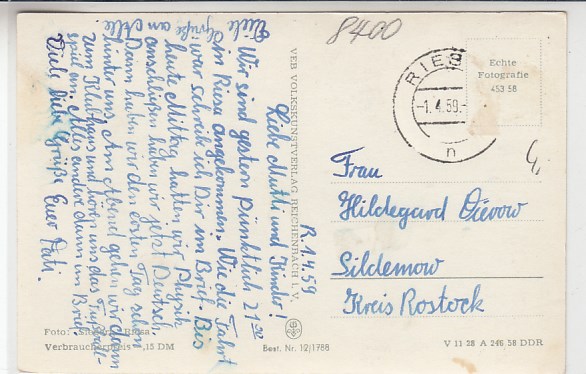 8400
R. 1.4.59
Liebe Mutti und Kinder!
Wir sind gestern pünktlich 21³²
in Riesa angekommen. Wie die Fahrt
war schreibe ich Dir im Brief. Bis
heute Mittag hatten wir Physik
anschließend haben wir jetzt Deutsch.
Dann haben wir den ersten Tag schon
hinter uns. Am Abend gehen wir dann
zum Klubhaus und hören uns das Fußball-
spiel an. Alles andere dann im Brief.
Viele liebe Grüße Euer Vati.
Viele
Grüße an Alle
VEB VOLKSKUNSTVERLAG REICHENBACH I. V.
RIES
-1.4.59.-
n
Echte
Fotografie
453 58
Frau
Hildegard Dievow
Sildemow
Kreis Rostock
Foto: Riesa
Verbraucherpreis -,15 DM
Best. Nr. 12/1788
V 11 28 A 246 58 DDR